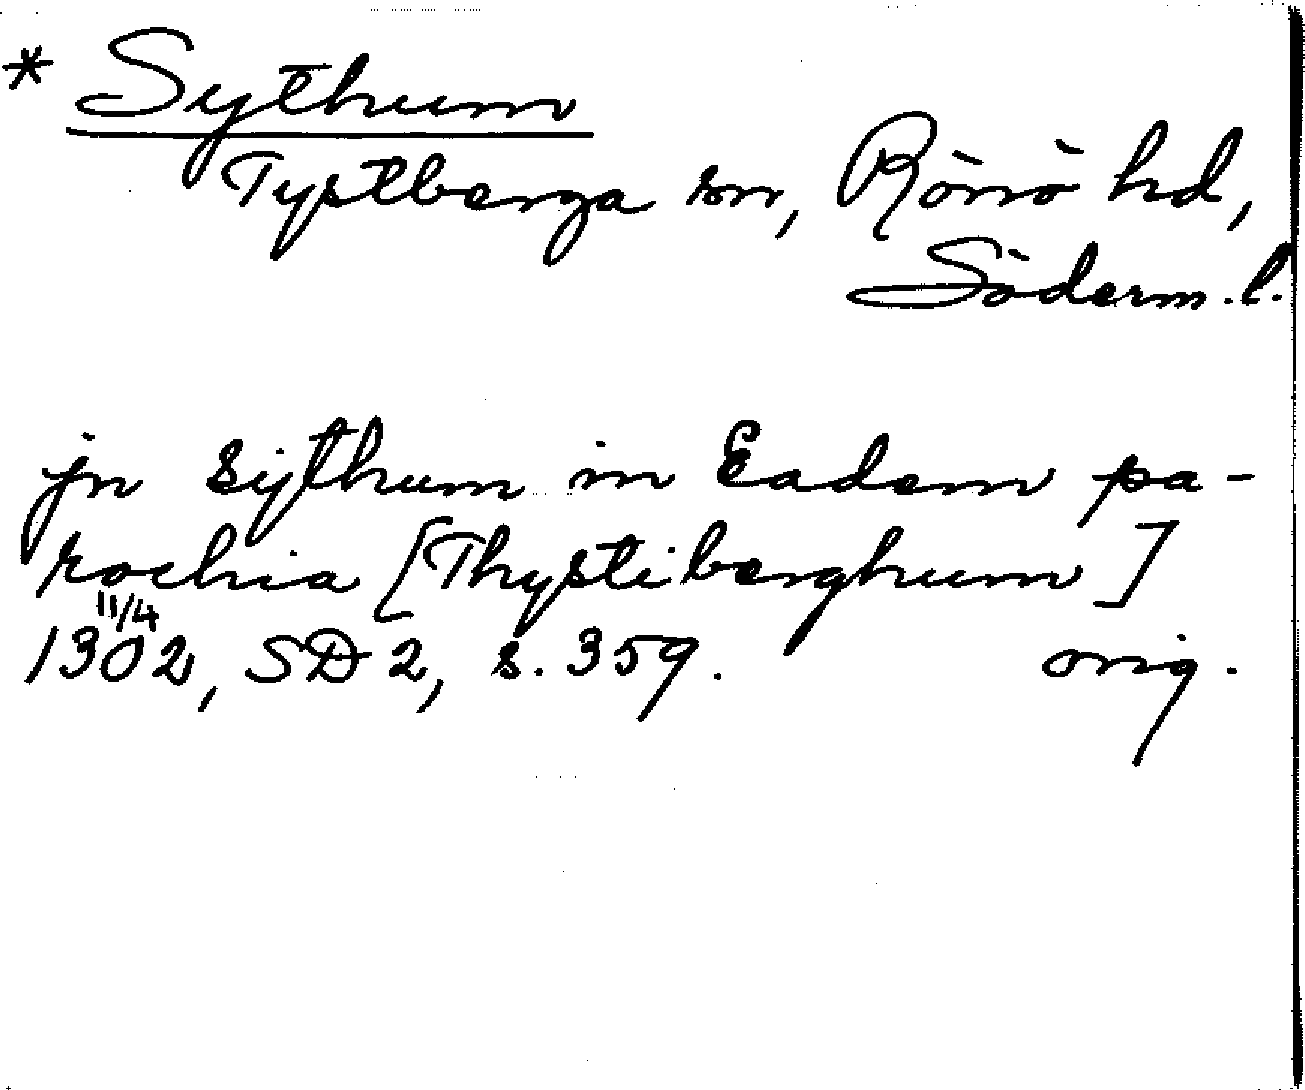 * Sythum
Tystberga sn, Rönö hd,
Söderm. l.
jn sijthum in Eadem pa-
rochia [Thystiberghum]
11/4
1302, SD 2, s. 359. orig.